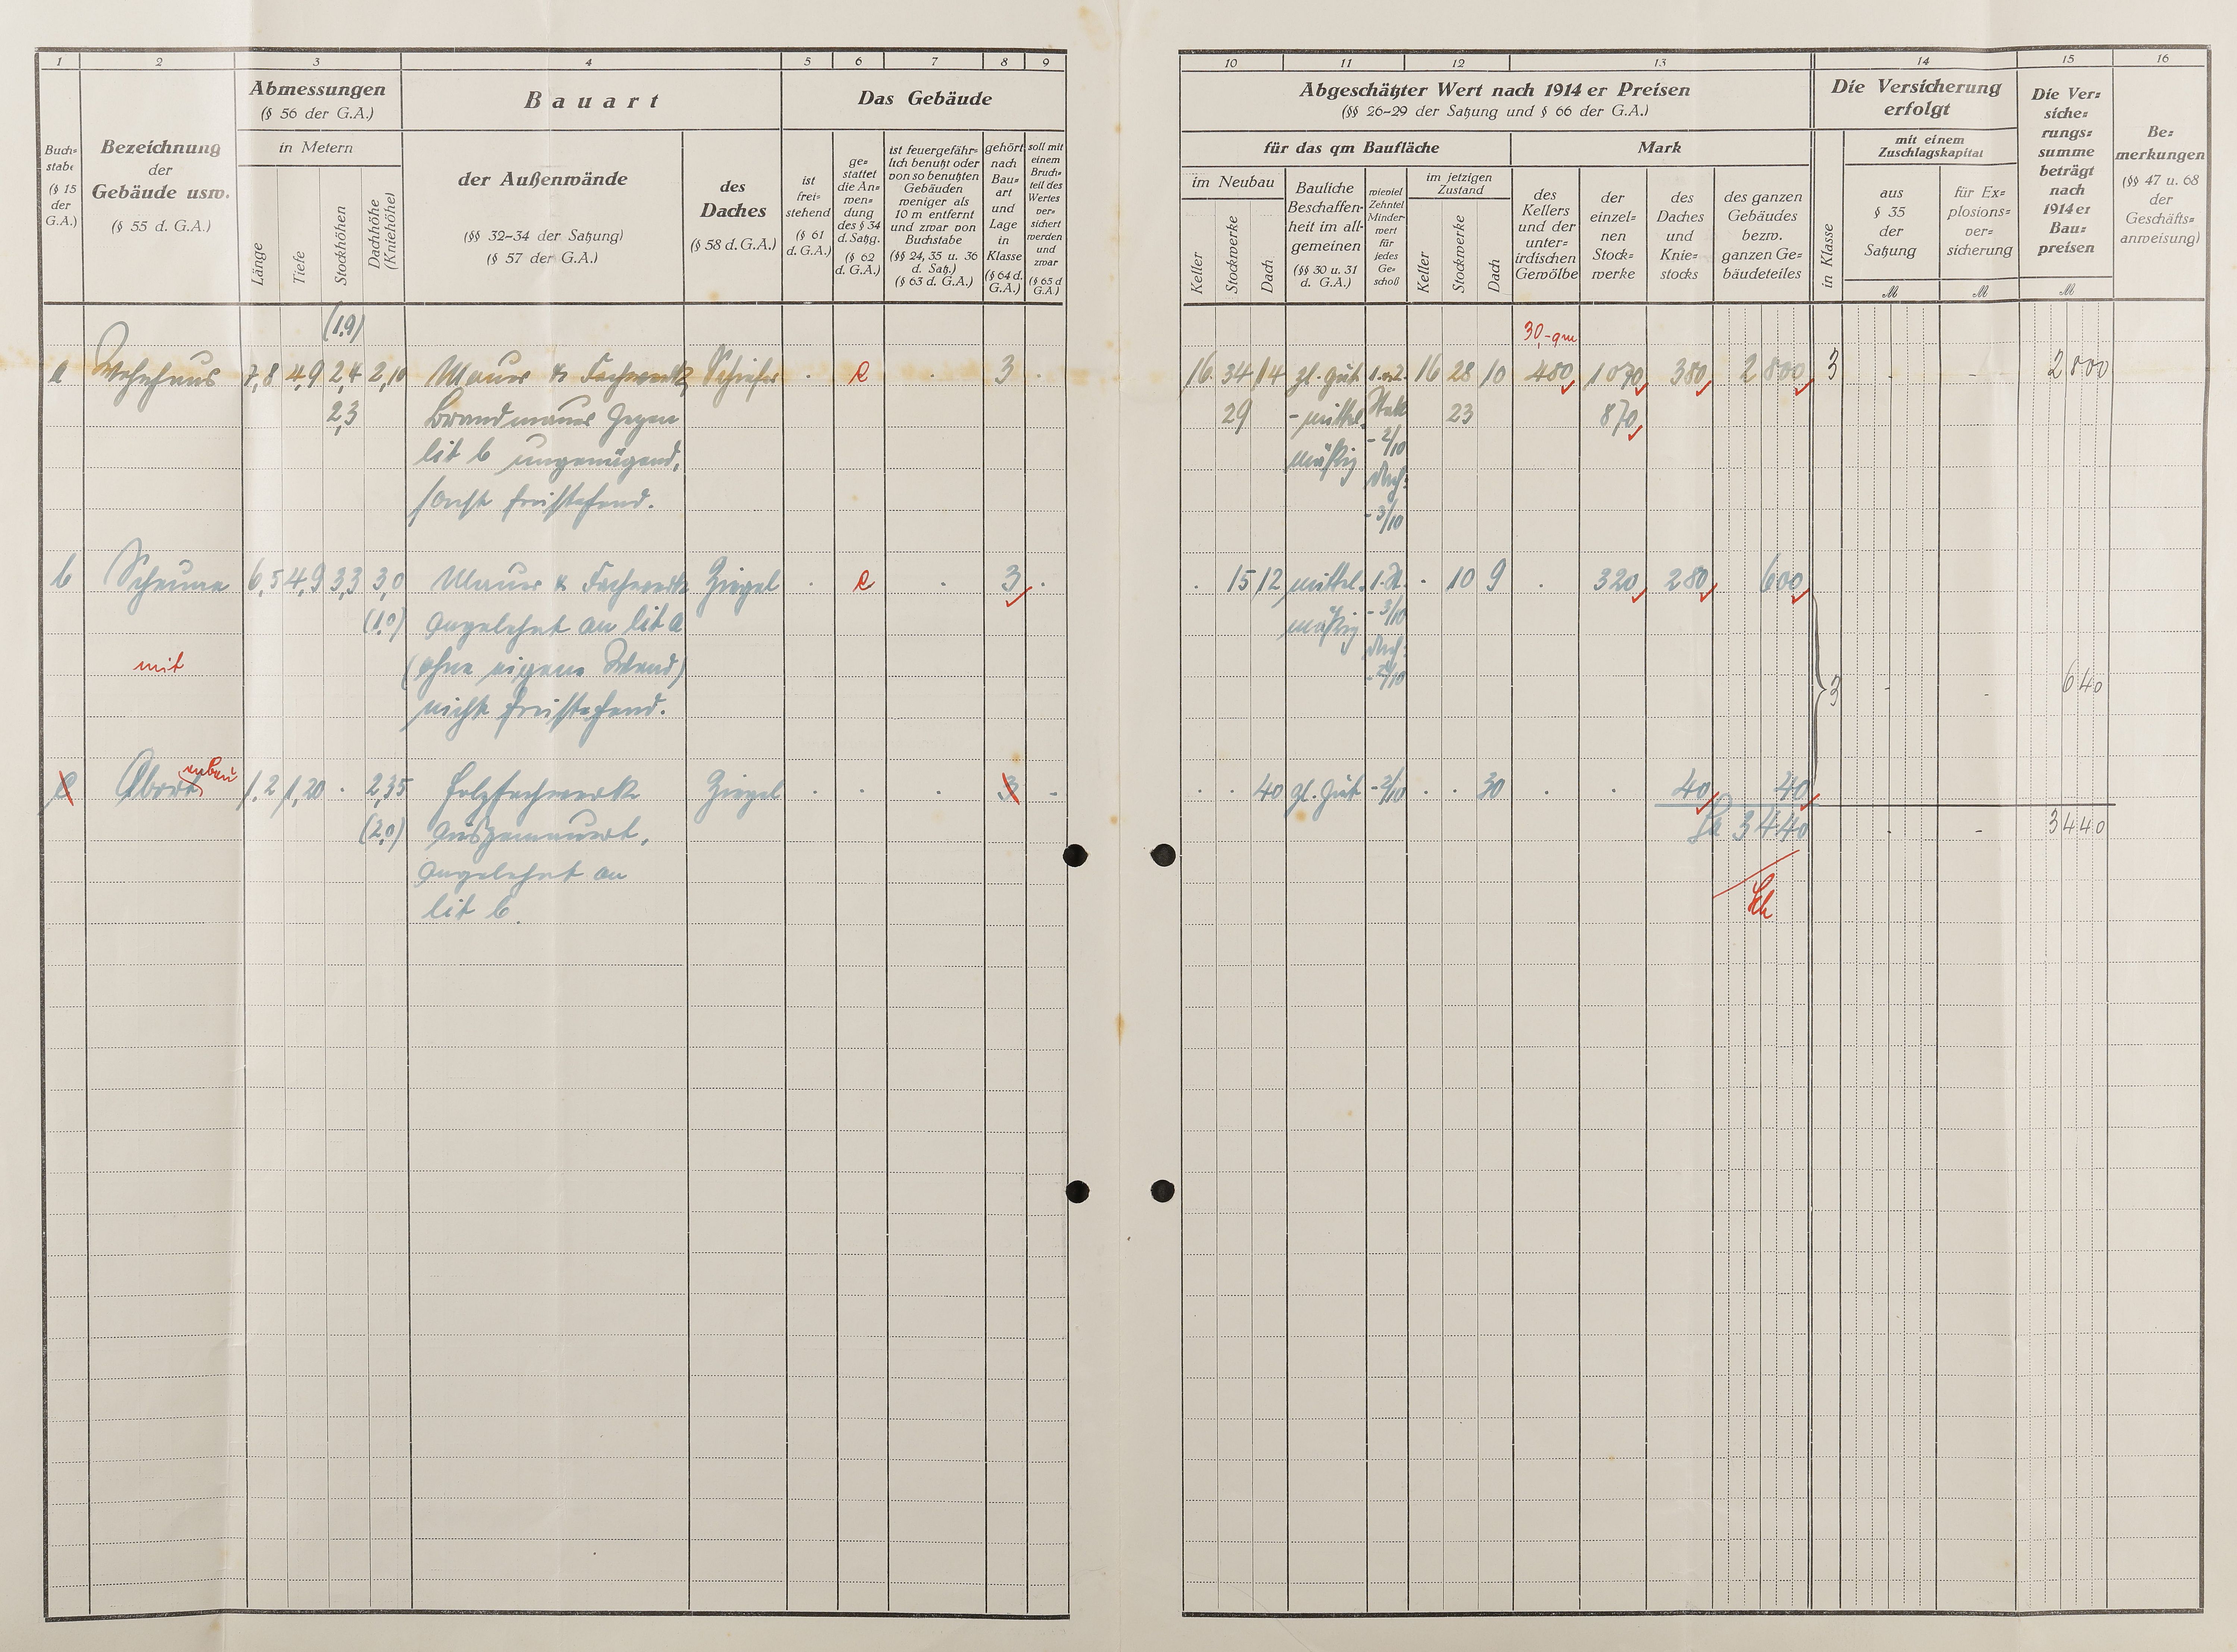 1 2 3 4 5 6 7 8 9
Abmessungen
(§ 56 der G.A.)
Bauart
Das Gebäude
Buch=
stabe
(§ 15
der
G.A.)
Bezeichnung
der
Gebäude usw.
(§ 55 d. G.A.)
in Metern
Länge
Tiefe
Stockhöhen
Dachhöhe
(Kniehöhe)
der Außenwände
(§§ 32–34 der Satzung)
(§ 57 der G.A.)
des
Daches
(§ 58 d. G.A.)
ist
frei=
stehend
(§ 61
d. G.A.)
ge=
stattet
die An=
wen=
dung
des § 34
d. Satzg.
(§ 62
d. G.A.)
ist feuergefähr=
lich benutzt oder
von so benutzten
Gebäuden
weniger als
10 m entfernt
und zwar von
Buchstabe
(§§ 24, 35 u. 36
d. Satz.)
(§ 63 d. G.A.)
gehört
nach
Bau=
art
und
Lage
in
Klasse
(§ 64 d.
G.A.)
soll mit
einem
Bruch=
teil des
Wertes
ver=
sichert
werden
und
zwar
(§ 65 d
G.A.)
(1,9)
a Wohnhaus 7,8 4,9 2,4 2,10 Mauer & Fachwerk, Schiefer . e 3 .
2,3 Brandmauer gegen
lit b ungenügend,
sonst freistehend.
b Scheune 6,5 4,9 3,3 3,0 Mauer & Fachwerk Ziegel . e . 3 .
(1,0) angelehnt an lit a
mit (ohne eigene Wand)
nicht freistehend.
anbau
c Abort 1,2 1,20 . 2,35 Holzfachwerk Ziegel . . . 3 -
(2,0) ausgemauert,
angelehnt an
lit b.
10 11 12 13 14 15 16
Abgeschätzter Wert nach 1914 er Preisen
(§§ 26–29 der Satzung und § 66 der G.A.)
für das qm Baufläche
Mark
im Neubau
Keller
Stockwerke
Dach
Bauliche
Beschaffen=
heit im all=
gemeinen
(§§ 30 u. 31
d. G.A.)
wieviel
Zehntel
Minder=
wert
für
jedes
Ge=
schoß
im jetzigen
Zustand
Keller
Stockwerke
Dach
des
Kellers
und der
unter=
irdischen
Gewölbe
der
einzel=
nen
Stock=
werke
des
Daches
und
Knie=
stocks
des ganzen
Gebäudes
bezw.
ganzen Ge=
bäudeteiles
Die Versicherung
erfolgt
in Klasse
mit einem
Zuschlagskapital
aus
§ 35
der
Satzung
für Ex=
plosions=
ver=
sicherung
Die Ver=
siche=
rungs=
summe
beträgt
nach
1914 er
Bau=
preisen
Be=
merkungen
(§§ 47 u. 68
der
Geschäfts=
anweisung)
M M M
30,-qm
16 34 14 zl. gut 1.u.2. 16 28 10 480 1070 380 2800 3 - - 2800
29 - mittel= Stock 23 870
mäßig - 2/10
Dach:
- 3/10
. 15 12 mittel= 1. St. . 10 9 . 320 280 600
mäßig - 3/10
Dach:
- 2/10
3 - - 640
. . 40 zl. gut - 2/10 . . 30 . . 40 40
3440 - - 3440